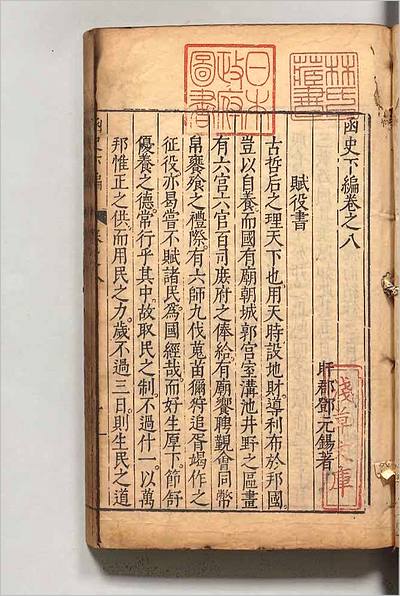 函史下編卷之八
盱郡鄧元錫著
賦役書
古哲后之理天下也用天時設地財導利布於邦國
豈以自養而國有廟朝城郭宮室溝池井野之區畫
有六官六宮百司庶府之俸給有廟饗聘覲會同幣
帛饔飱之禮際有六師九伐蒐苗獮狩追胥竭作之
征役亦易嘗不賦諸民爲國經哉而好生厚下節舒
優養之德常行乎其中故取民之制不過什一以萬
邦惟正之供而用民之力歲不過三日則生民之道
林氏藏書
日本政府圖書
淺草文庫